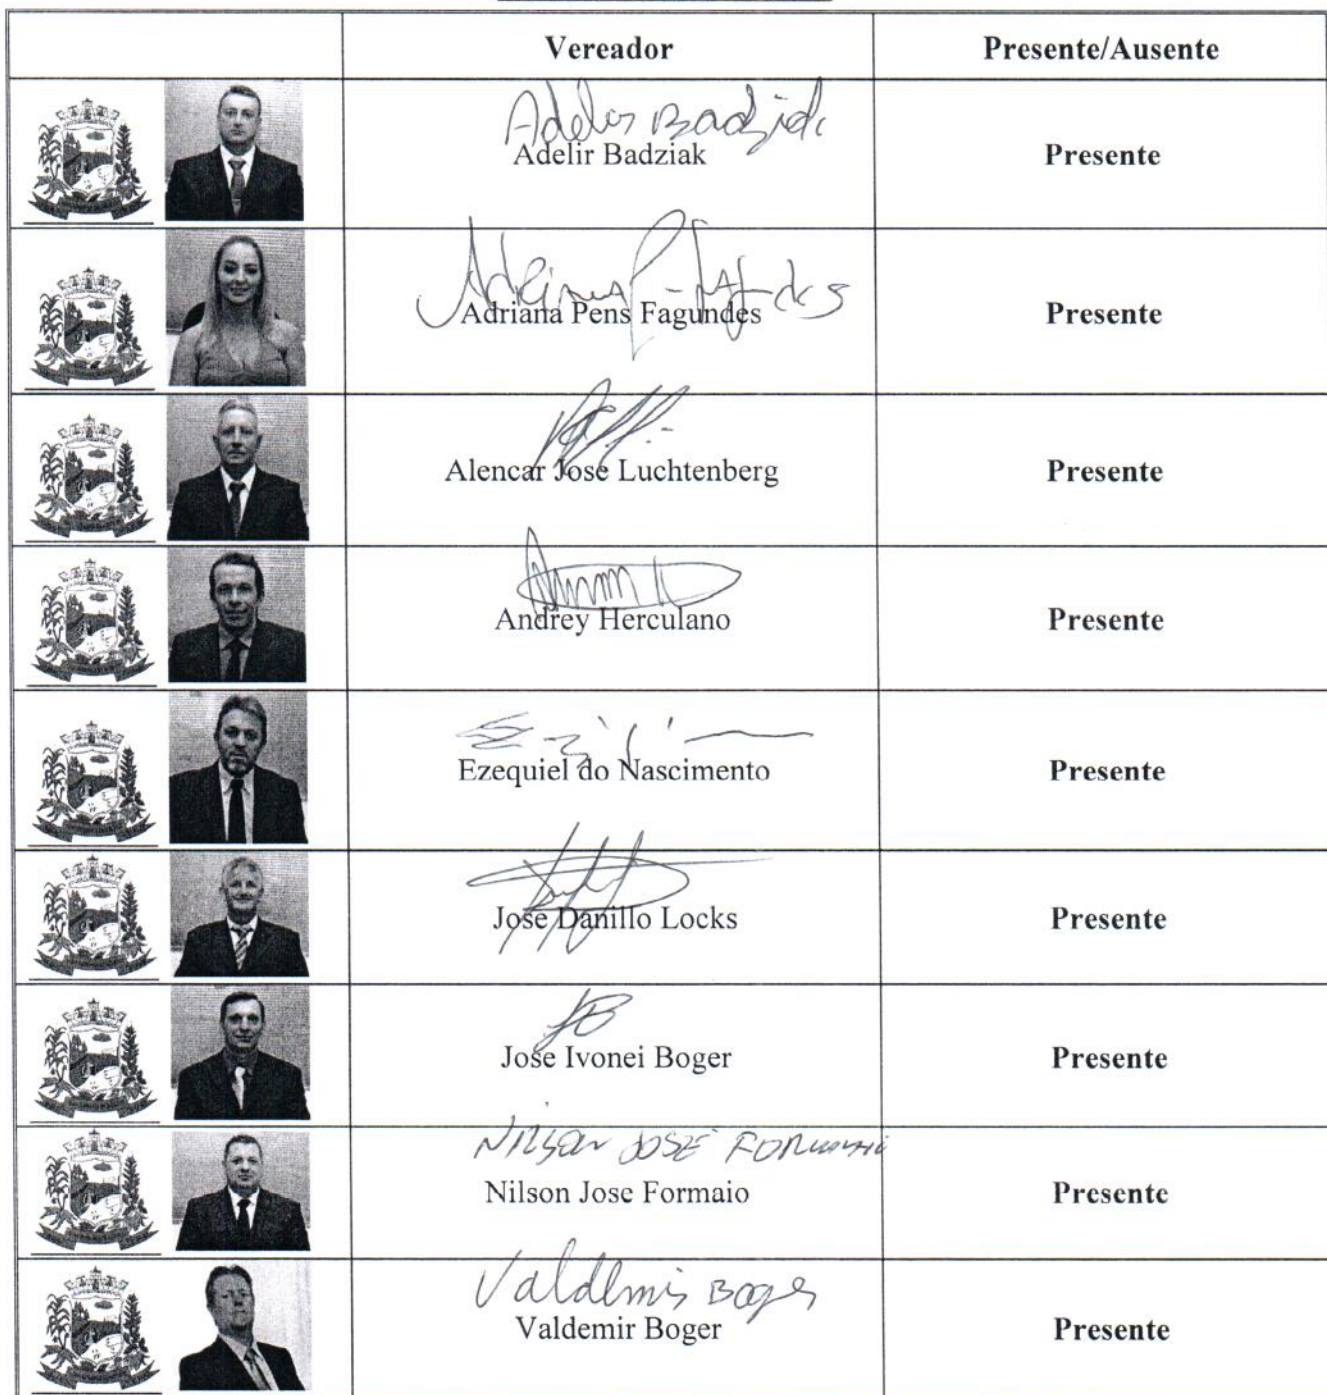 Vereador Presente/Ausente
Adelir Badziak
Adelir Badziak Presente
Adriana P. Fagundes
Adriana Pens Fagundes Presente
Alencar Jose Luchtenberg Presente
Andrey Herculano Presente
Ezequiel do Nascimento Presente
Jose Danillo Locks Presente
JB
Jose Ivonei Boger Presente
NILSON JOSÉ FORMAIO
Nilson Jose Formaio Presente
Valdemir Boger
Valdemir Boger Presente